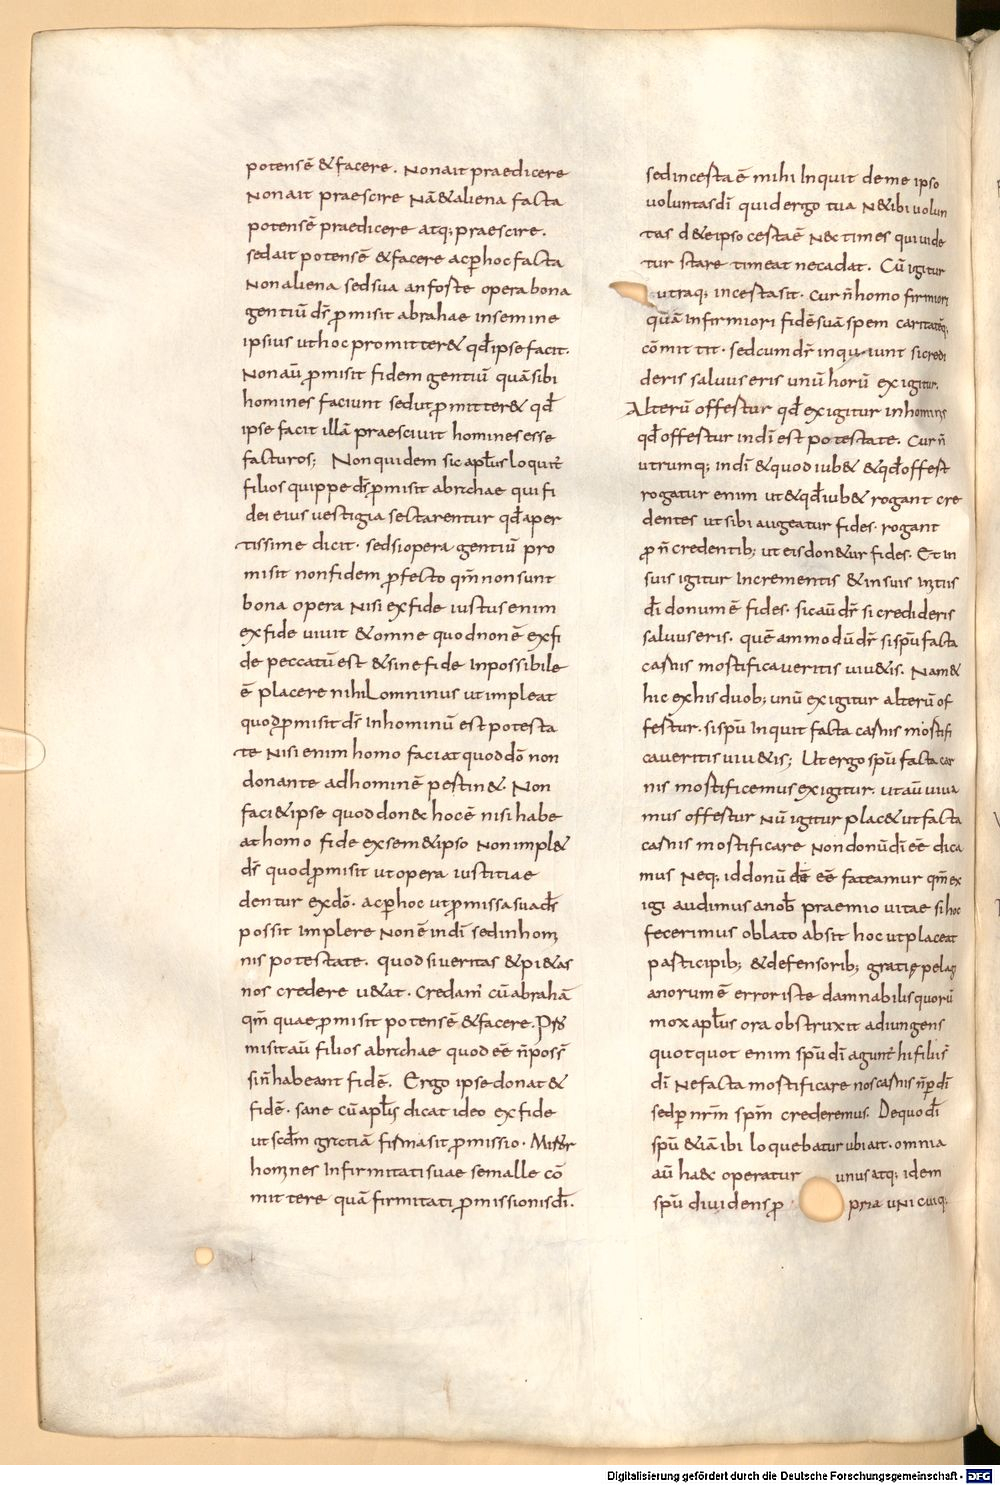 potensē & facere. Non ait praedicere
Non ait praescire Nā & aliena facta
potensē praedicere atq; praescire.
sed ait potensē & facere ac p hoc facta
Non aliena sed sua an foste opera bona
gentiū dr̄ p̄misit abrahae in semine
ipsius ut hoc promitter& qd̄ ipse facit.
Non aū p̄misit fidem gentiū quā sibi
homines faciunt sed ut p̄mitter& qd̄
ipse facit illā praescivit homines esse
facturos; Non quidem sic apl̄us loquit̄
filios quippe ds̄ p̄misit abrahae qui fi
dei eius vestigia sectarentur qd̄ aper
tissime dicit. sed si opera gentiū pro
misit non fidem p̄fecto qm̄ non sunt
bona opera Nisi ex fide iustus enim
ex fide vivit & omne quod non ē ex fi
de peccatū est & sine fide Inpossibile
ē placere nihil ominus ut impleat
quod p̄misit ds̄ In hominū est potesta
te Nisi enim homo faciat quod dō non
donante ad hominē pestin&. Non
faci& ipse quod don& hoc ē nisi habe
at homo fide ex sem&ipso Non impl&
ds̄ quod p̄misit ut opera iustitiae
dentur ex dō. ac p hoc ut p̄missa sua ds̄
possit Implere Non ē in dī sed in hom
nis potestate. quod si veritas & pi&as
nos credere v&at. Credam̄ cū abrahā
qm̄ quae p̄misit potensē & facere. P̄ro
misit aū filios abrahae quod eē n̄ poss̄
sin̄ habeant fidē. Ergo ipse donat &
fidē. sane cū apl̄s dicat ideo ex fide
ut scdm̄ gratiā firma sit p̄missio. Miror
homnes Infirmitati suae se malle cō
mittere quā firmitati p̄missionis dī.
sed incesta ē mihi Inquit de me ipso
voluntas dī quid ergo tua N& ibi volun
tas d& eipso cesta ē Nec times qui vide
tur stare timeat ne cadat. Cū igitur
utraq; incesta sit. cur n̄ homo firmiori
quā infirmiori fidē suā spem caritatēq;
cōmittit. sed cum dr̄ inquiunt si credi
deris salvus eris unū horū exigitur.
Alterū offestur qd̄ exigitur in hominis
qd̄ offestur in dī est potestate. Cur n̄
utrumq; in dī & quod iub& & qd̄ offest
rogatur enim ut & qd̄ iub& rogant cre
dentes ut sibi augeatur fides. rogant
p n̄ credentib; ut eis don&ur fides. Et in
suis igitur Incrementis & in suis Initiis
dī donum ē fides. sic aū dr̄ si credideris
salvus eris. quē ammodū dr̄ si spū facta
casnis mostificaveritis viv&is. Nam &
hic ex his duob; unū exigitur alterū of
festur. si spū Inquit facta casnis mostifi
caveritis viv&is; Ut ergo spū facta car
nis mostificemus exigitur. ut aū viva
mus offestur Nū igitur plac& ut facta
casnis mostificare Non donū dī eē dica
mus Neq; id donū dī eē fateamur qm̄ ex
igi audimus a nob̄ praemio vitae si hoc
fecerimus oblato absit hoc ut placeat
pasticipib; & defensorib; gratię pelagi
anorum ē error iste damnabilis quorū
mox apl̄us ora obstruxit adiungens
quotquot enim spū dī agunt̄ hi filii s̄
dī Ne facta mostificare nos casnis n̄ p dī
sed p nr̄m spm̄ crederemus. De quo dī
spū & iā ibi loquebatur ubi ait. omnia
aū haec operatur unus atq; idem
spū dividens p̄ pria unicuiq;
Digitalisierung gefördert durch die Deutsche Forschungsgemeinschaft - DFG